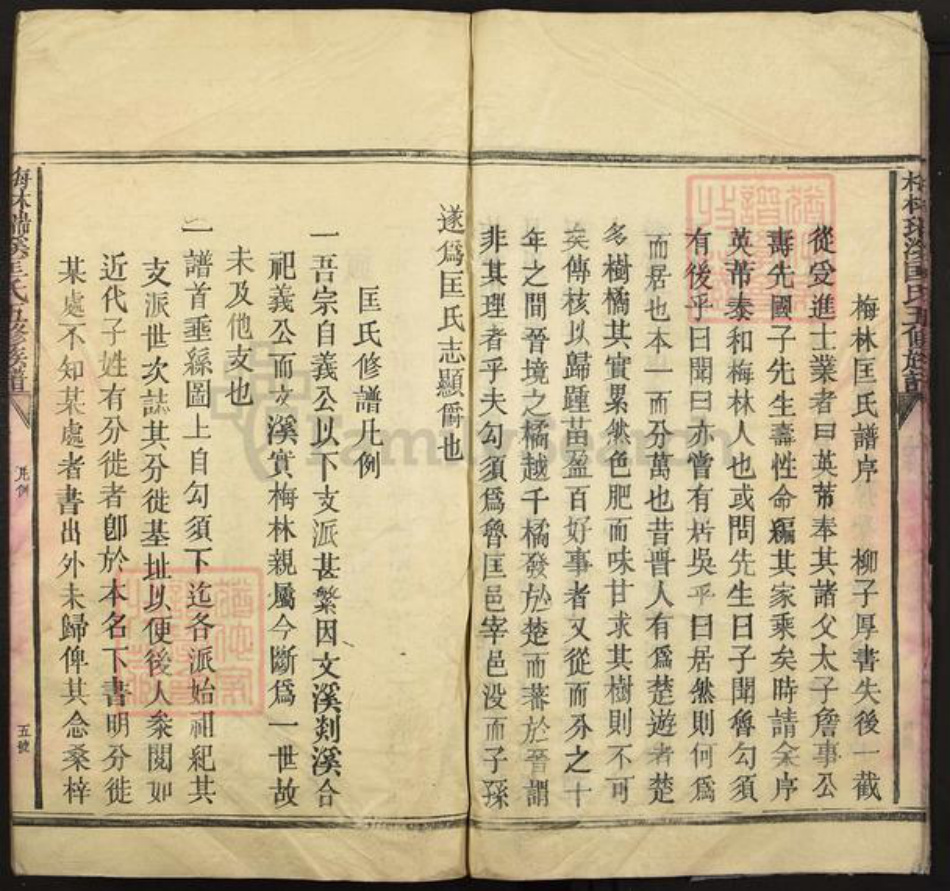 梅林匡氏譜序　柳子厚書失後一截
從受進士業者曰英芾奉其諸父太子詹事公
壽先國子先生壽性命編其家乘矣時請余序
英芾泰和梅林人也或問先生曰子聞魯勾須
有後乎曰聞曰亦嘗有居吳乎曰居然則何爲
而居也本一而分萬也昔晋人有爲楚遊者楚
多樹橘其實累然色肥而味甘求其樹則不可
矣傳核以歸踵苗盈百好事者又從而分之十
年之間晉境之橘越千橘發於楚而蕃於晉謂
非其理者乎夫勾須爲魯匡邑宰邑没而子孫
遂爲匡氏志顯爾也
匡氏修譜凡例
一吾宗自義公以下支派甚繁因文溪剡溪合
祀義公而文溪實梅林親屬今斷爲一世故
未及他支也
一譜首垂絲圖上自勾須下迄各派始祖紀其
支派世次誌其分徙基址以便後人叅閱如
近代子姓有分徙者卽於本名下書明分徙
某處不知某處者書出外未歸俾其念桑梓
梅林瑞溪匡氏五修族譜
凡例
五號
FamilySearch